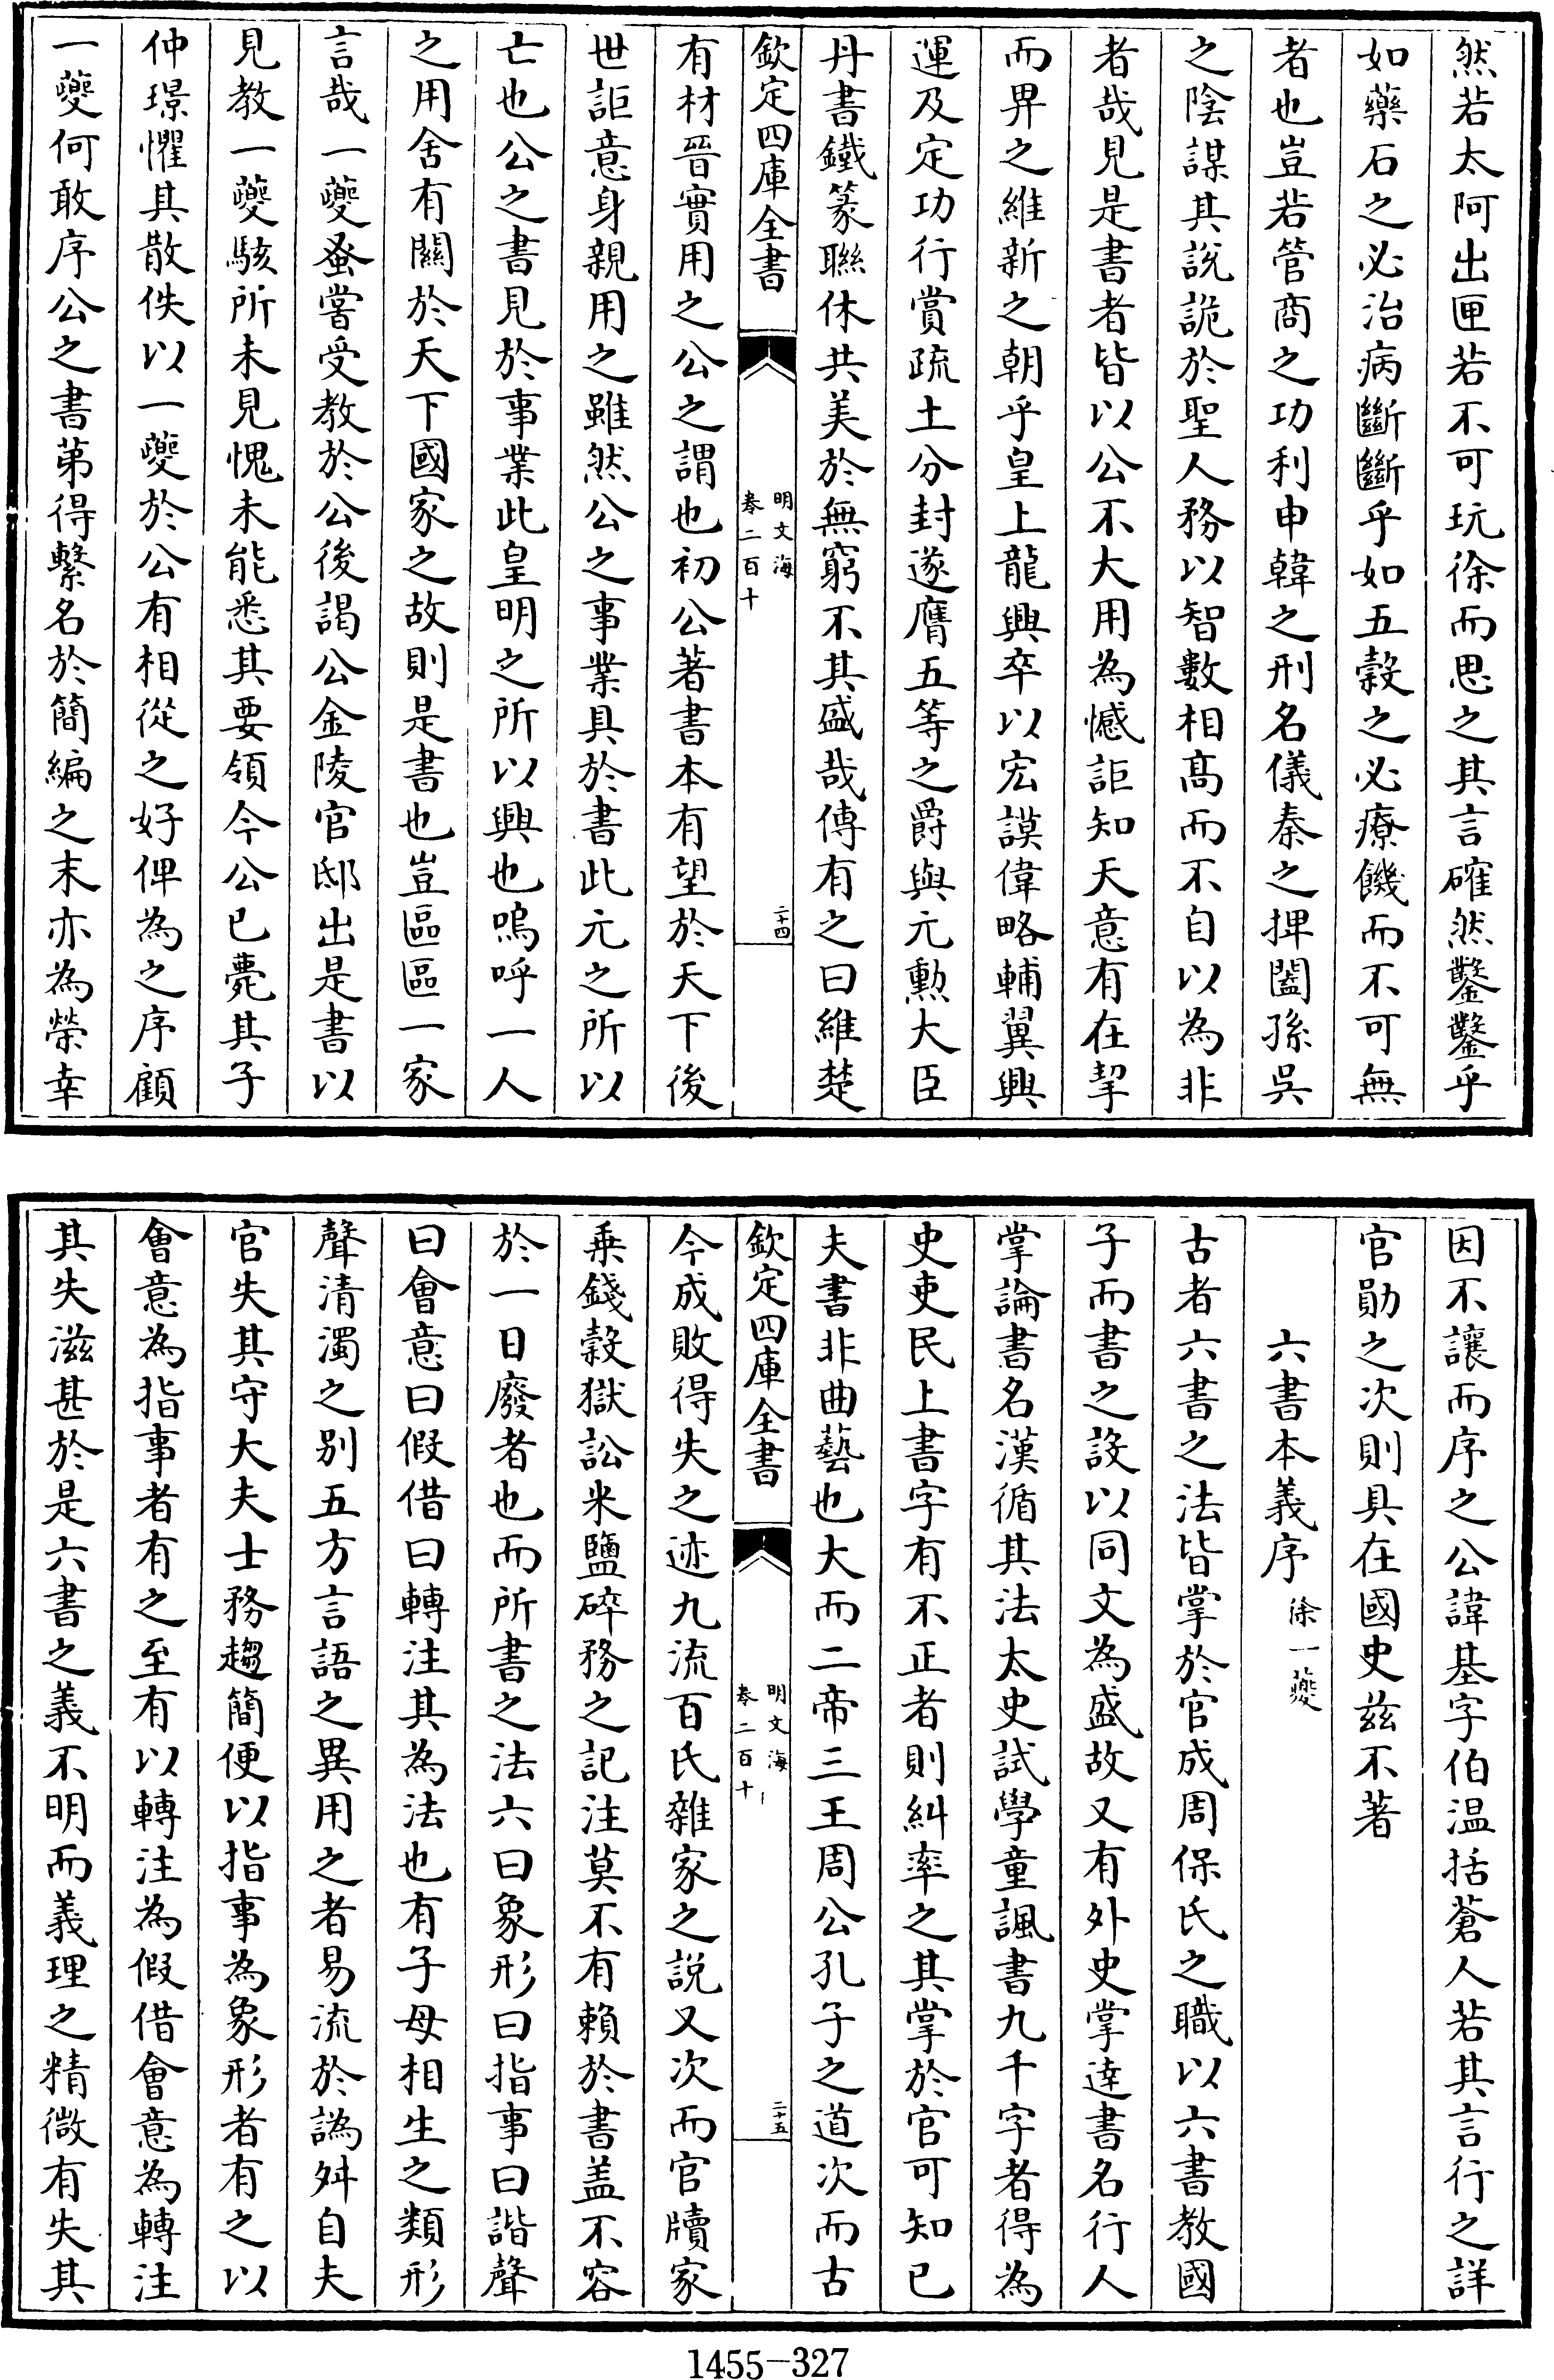 然若太阿出匣若不可玩徐而思之其言確然鑿鑿乎
如藥石之必治病斷斷乎如五榖之必療饑而不可無
者也豈若管商之功利申韓之刑名儀秦之捭闔孫吳
之陰謀其說詭於聖人務以智數相髙而不自以為非
者哉見是書者皆以公不大用為憾詎知天意有在挈
而畀之維新之朝乎皇上龍興卒以宏謨偉略輔翼興
運及定功行賞疏土分封遂膺五等之爵與元勲大臣
丹書鐵篆聯休共美於無窮不其盛哉傳有之曰維楚
欽定四庫全書
明文海
卷二百十
二十四
有材晉實用之公之謂也初公著書本有望於天下後
世詎意身親用之雖然公之事業具於書此元之所以
亡也公之書見於事業此皇明之所以興也嗚呼一人
之用舍有關於天下國家之故則是書也豈區區一家
言哉一夔蚤嘗受教於公後謁公金陵官邸出是書以
見教一夔駭所未見愧未能悉其要領今公已薨其子
仲璟懼其散佚以一夔於公有相從之好俾為之序顧
一夔何敢序公之書苐得繫名於簡編之末亦為榮幸
因不讓而序之公諱基字伯温括蒼人若其言行之詳
官勛之次則具在國史兹不著
六書本義序 徐一夔
古者六書之法皆掌於官成周保氏之職以六書教國
子而書之設以同文為盛故又有外史掌達書名行人
掌論書名漢循其法太史試學童諷書九千字者得為
史吏民上書字有不正者則糾率之其掌於官可知已
夫書非曲藝也大而二帝三王周公孔子之道次而古
欽定四庫全書
明文海
卷二百十
二十五
今成敗得失之迹九流百氏雜家之説又次而官牘家
乗錢榖獄訟米鹽碎務之記注莫不有賴於書盖不容
於一日廢者也而所書之法六曰象形曰指事曰諧聲
曰會意曰假借曰轉注其為法也有子母相生之類形
聲清濁之别五方言語之異用之者易流於譌舛自夫
官失其守大夫士務趨簡便以指事為象形者有之以
會意為指事者有之至有以轉注為假借會意為轉注
其失滋甚於是六書之義不明而義理之精微有失其
1455-327